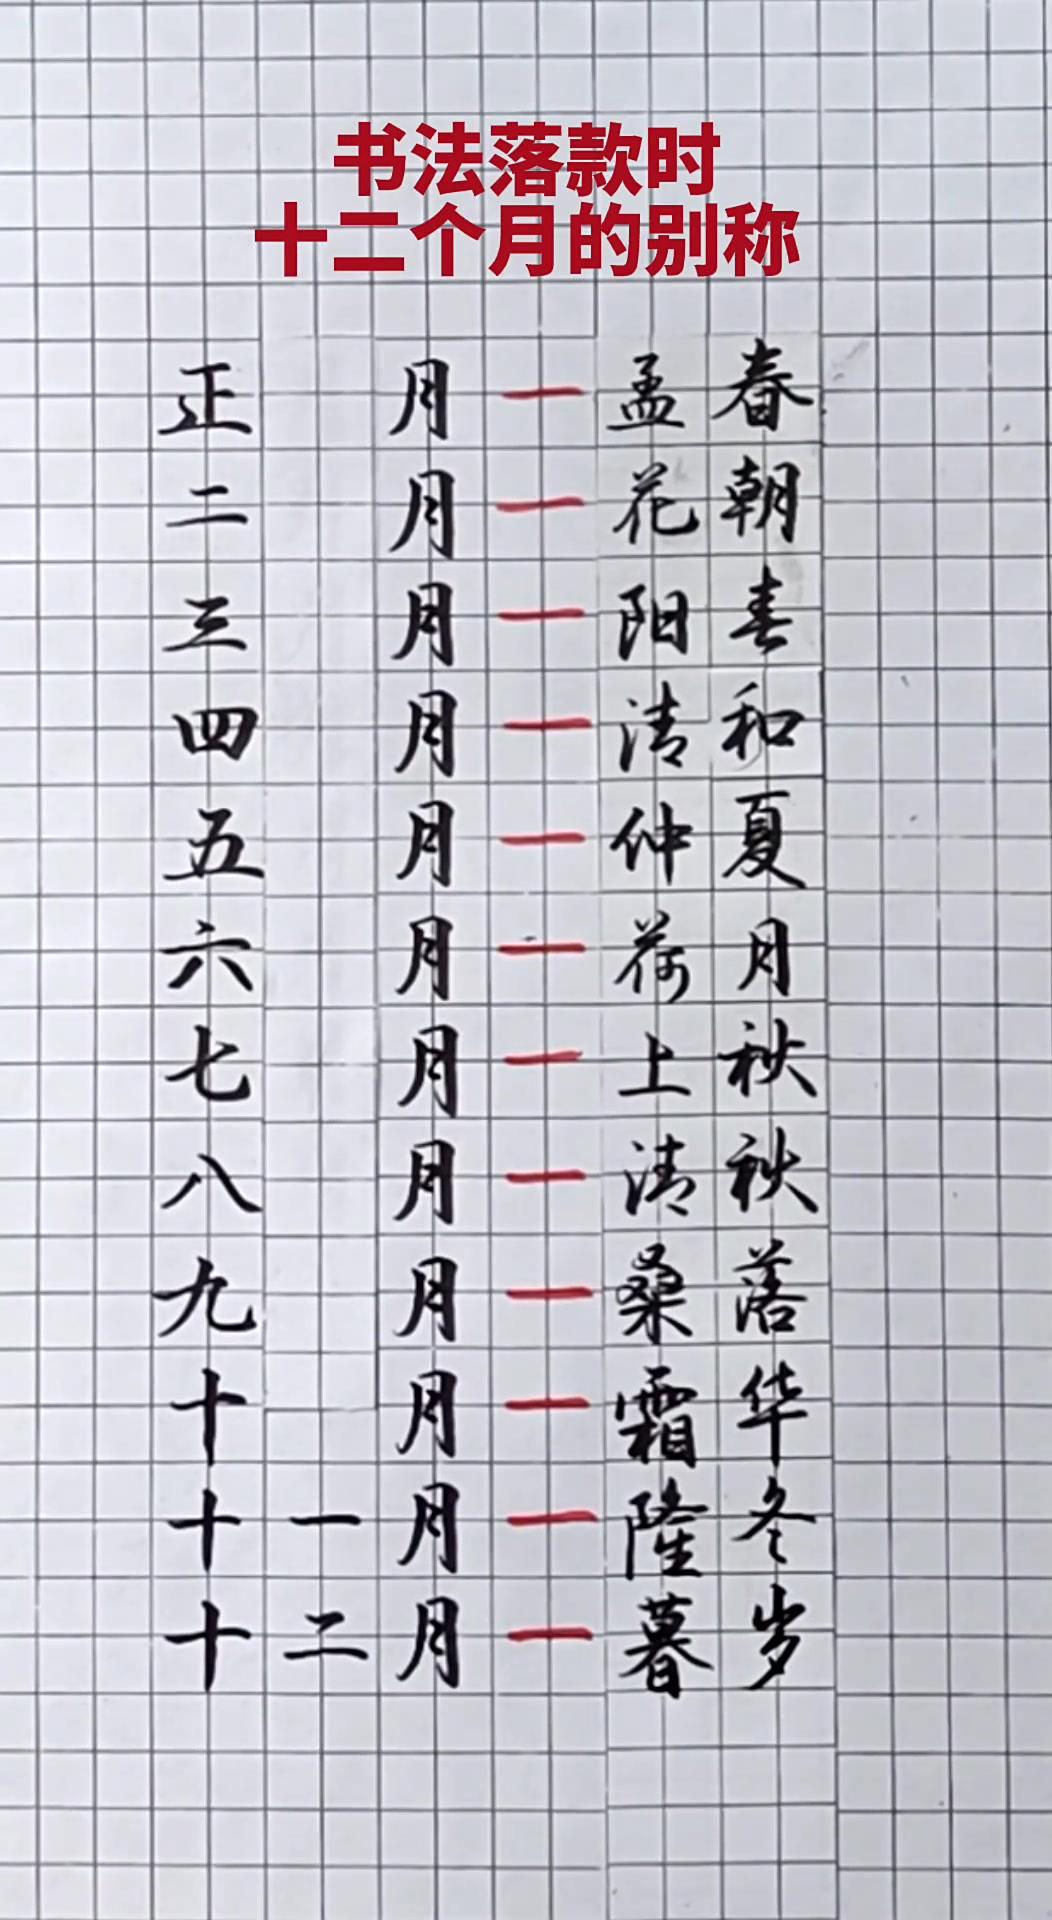 书法落款时
十二个月的别称
正月一孟春
二月一花朝
三月一阳春
四月一清和
五月一仲夏
六月一荷月
七月一上秋
八月一清秋
九月一桑落
十月一霜华
十一月一隆冬
十二月一暮岁